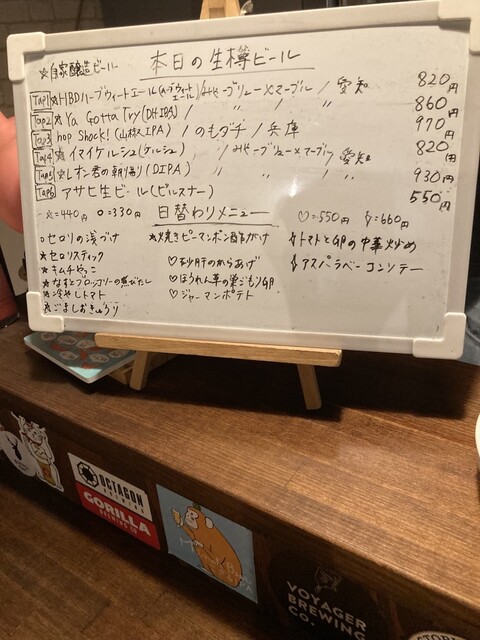 ☆自家醸造ビール 本日の生樽ビール
Tap1 ☆HBDハーブウィートエール(ハーブウィートエール)/みやーブリューメープル/愛知 820円
Tap2 ☆Ya Gotta Try(DHIPA) / 〃 / 〃 860円
Tap3 hop Shock!(山椒IPA) / のもダチ / 兵庫 970円
Tap4 ☆イマイケルシュ(ケルシュ) / 愛知 820円
Tap5 ☆レオン君の朝帰り(DIPA) / 〃 / 〃 930円
Tap6 アサヒ生ビール(ピルスナー) 550円
☆=440円 ○=330円 日替わりメニュー ♡=550円 =660円
○セロリの浅づけ
★セロリスティック
★キムチやっこ
★なすとブロッコリーの煮びたし
★冷やしトマト
★ごましおきゅうり
★焼きピーマンポン酢がけ
♡砂肝のからあげ
♡ほうれん草の巣ごもり卵
♡ジャーマンポテト
トマトと卵の中華炒め
アスパラベーコンソテー
OCTAGON
BREWING
GORILLA
BREWING CO.
VOYAGER
BREWING
CO.